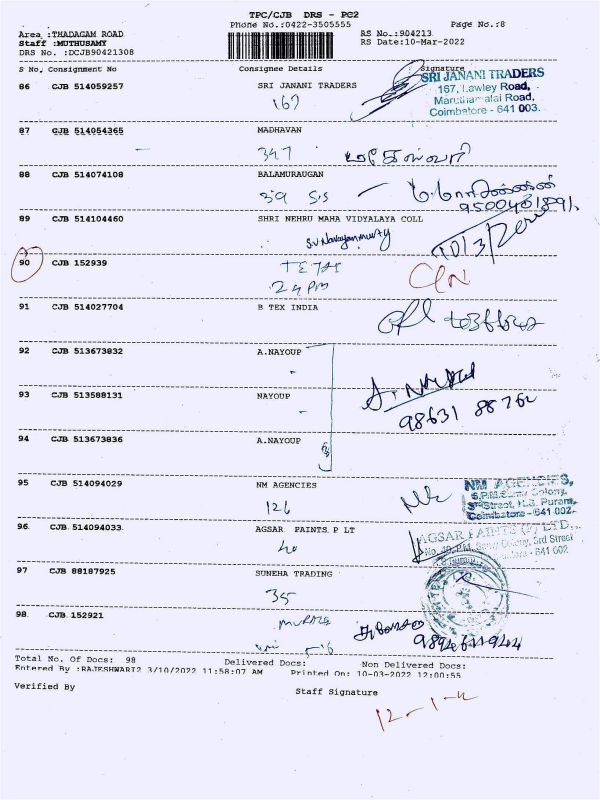 TPC/CJB DRS - PC2
Phone No.:0422-3505555 Page No.:8
Area :THADAGAM ROAD RS No.:904213
Staff :MUTHUSAMY RS Date:10-Mar-2022
DRS No. :DCJB90421308
S No. Consignment No Consignee Details Signature
86 CJB 514059257 SRI JANANI TRADERS
167
SRI JANANI TRADERS
167, Lawley Road,
Maruthamalai Road,
Coimbatore - 641 003.
87 CJB 514054365 MADHAVAN
347 மகேஸ்வரி
88 CJB 514074108 BALAMURAUGAN
39 S.S
89 CJB 514104460 SHRI NEHRU MAHA VIDYALAYA COLL
10/3/2022
90 CJB 152939
24 PM
91 CJB 514027704 B TEX INDIA
92 CJB 513673832 A.NAYOUP
93 CJB 513588131 NAYOUP
98631 88762
94 CJB 513673836 A.NAYOUP
(3)
95 CJB 514094029 NM AGENCIES
126
NM AGENCIES,
3rd Street, N.S. Puram,
Coimbatore - 641 002.
96 CJB 514094033 AGSAR PAINTS P LT
40
AGSAR PAINTS (P) LTD.,
3rd Street
641 002
97 CJB 88187925 SUNEHA TRADING
35
98 CJB 152921
9894611944
Total No. Of Docs: 98 Delivered Docs: Non Delivered Docs:
Entered By :RAJESHWARI2 3/10/2022 11:58:07 AM Printed On: 10-03-2022 12:00:55
Verified By Staff Signature
12-1-4